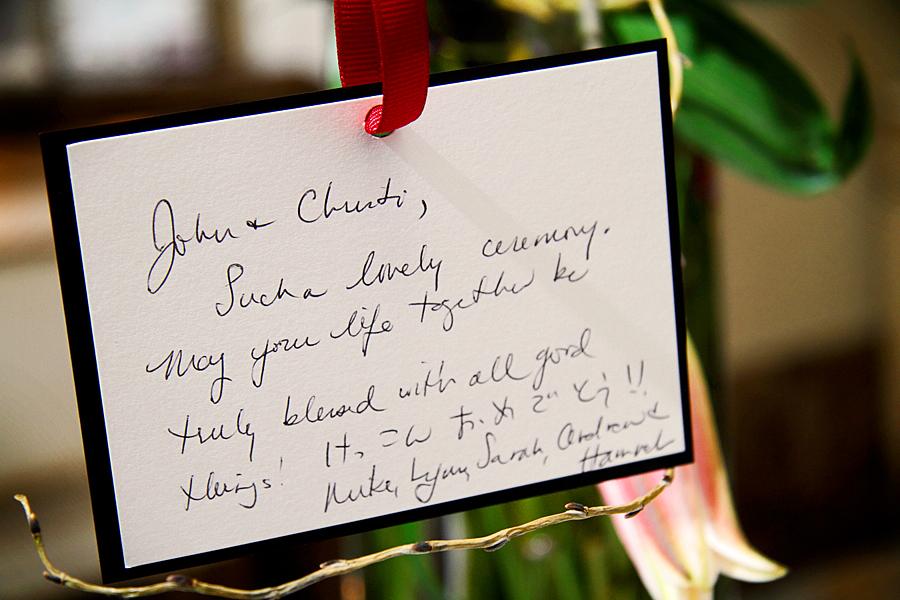 John & Christi,
Such a lovely ceremony.
May your life together be
truly blessed with all good
things!
Mike, Lynn, Sarah, Andrew &